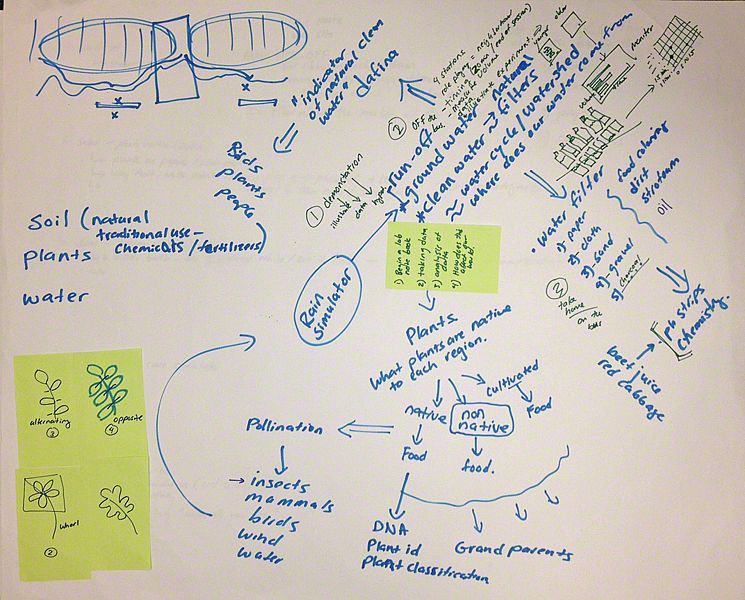 "indicator
of natural clean
water"
dafina
Birds
plants
people
Soil (natural
traditional use -
chemicals / fertilizers)
plants
water
① demonstration
Rain
Simulator
② OFF the
bus
4 stations
run-off
*ground water → natural
*clean water → filters
≈ water cycle / watershed
≈ where does our water come from
Monitor
1) Begin a lab
note book
2) taking data
3) analysis of
data
• water filter
1) paper
2) cloth
3) sand
4) gravel
5) charcoal
food coloring
dirt
oil
③
take
home
on the
bus
pH strips
Chemistry.
beet juice
red cabbage
Plants
What plants are native
to each region.
native
non
native
cultivated
Food
Food
food.
Pollination
→ insects
mammals
birds
wind
water
DNA
Plant id
Plant classification
Grand parents
alternating
③
opposite
④
whorl
②